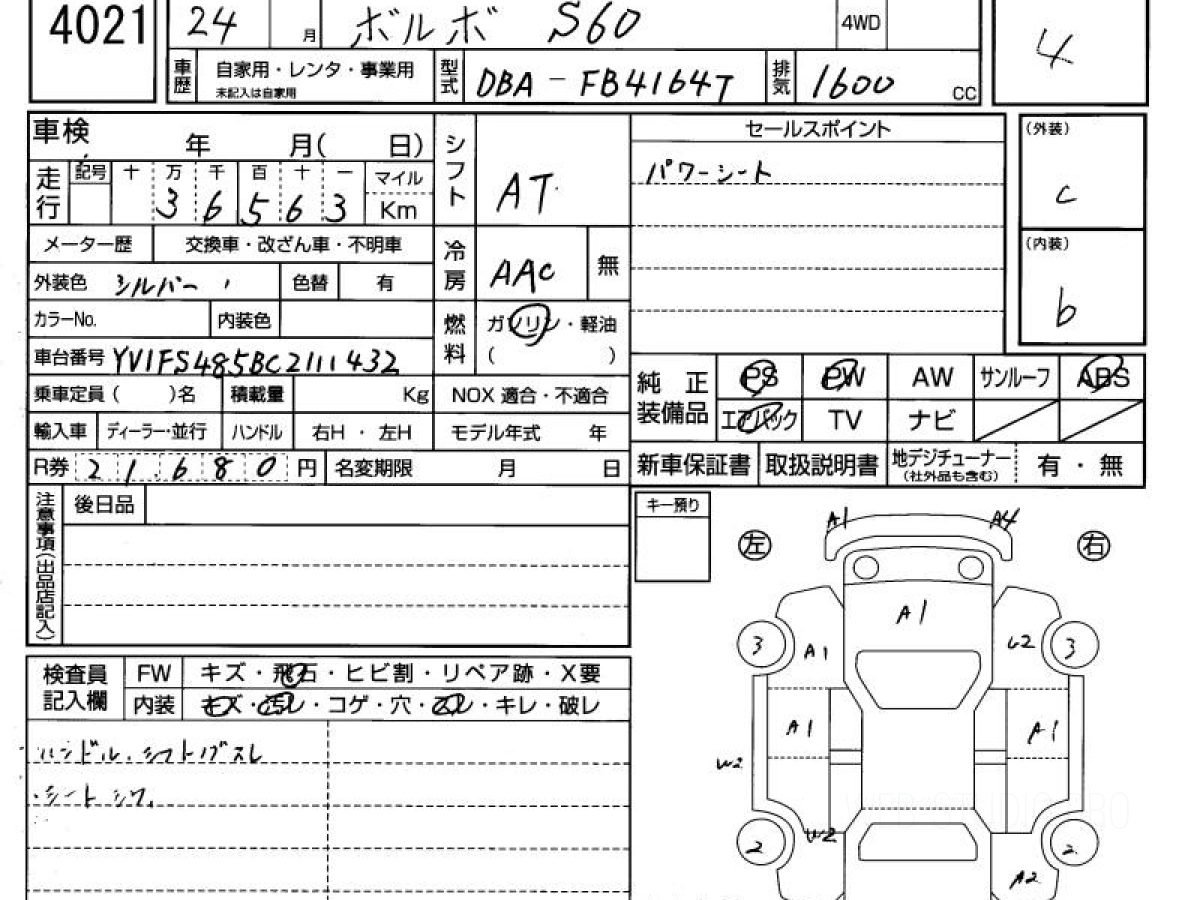 4021 24 月 ボルボ S60 4WD 4
車歴 自家用・レンタ・事業用 未記入は自家用 型式 DBA-FB4164T 排気 1600 CC
車検 年 月( 日) シフト AT セールスポイント (外装) c
走行 記号 十 万 千 百 十 一 マイル Km
3 6 5 6 3
パワーシート
メーター歴 交換車・改ざん車・不明車 冷房 AAC 無 (内装) b
外装色 シルバー 色替 有
カラーNo. 内装色 燃料 ガソリン・軽油 ( )
車台番号 YV1FS485BC2111432
純正装備品 PS PW AW サンルーフ ABS
エアバック TV ナビ
乗車定員( )名 積載量 Kg NOX 適合・不適合
輸入車 ディーラー・並行 ハンドル 右H・左H モデル年式 年
R券 21,680 円 名変期限 月 日
新車保証書 取扱説明書 地デジチューナー (社外品も含む) 有・無
注意事項(出品店記入) 後日品
キー預り
左 A1 A4 右
A1
3 A1 U2 3
A1 A1
W2
2 W2 2
A2
検査員記入欄 FW キズ・飛石・ヒビ割・リペア跡・X要
内装 キズ・汚レ・コゲ・穴・スレ・キレ・破レ
ハンドル.シフトノブスレ
・シートシワ.